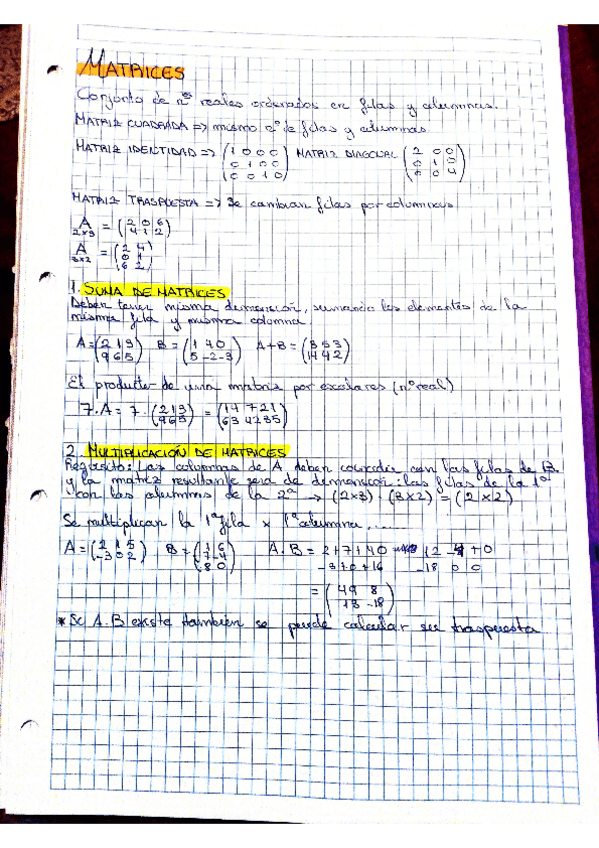 MATRICES
Conjunto de nºs reales ordenados en filas y columnas.
MATRIZ CUADRADA => mismo nº de filas y columnas
MATRIZ IDENTIDAD => (1 0 0 0 MATRIZ DIAGONAL (2 0 0
0 1 0 0 0 1 0
0 0 1 0) 0 0 4)
MATRIZ TRASPUESTA => Se cambian filas por columnas
A = (2 0 6
2x3 4 1 2)
A = (2 4
3x2 0 1
6 2)
1. SUMA DE MATRICES
Deben tener misma dimensión, sumando los elementos de la
misma fila y misma columna
A = (2 1 3 B = (1 4 0 A+B = (3 5 3
9 6 5) 5 -2 -3) 14 4 2)
El producto de una matriz por escalares (nº real)
7·A = 7·(2 1 3 = (14 7 21
9 6 5) 63 42 35)
2. MULTIPLICACIÓN DE MATRICES
Requisito: Las columnas de A deben coincidir con las filas de B
y la matriz resultante sera de dimension: las filas de la 1ª
con las columnas de la 2ª → (2x3)·(3x2) = (2x2)
Se multiplican la 1ª fila x 1ª columna.....
A = (2 1 5 B = (1 6 A·B = 2+7+40 12 -4 +0
-3 0 2) 7 -4 -3+0+16 -18 0 0
8 0)
= (49 8
13 -18)
* Si A·B existe también se puede calcular su traspuesta